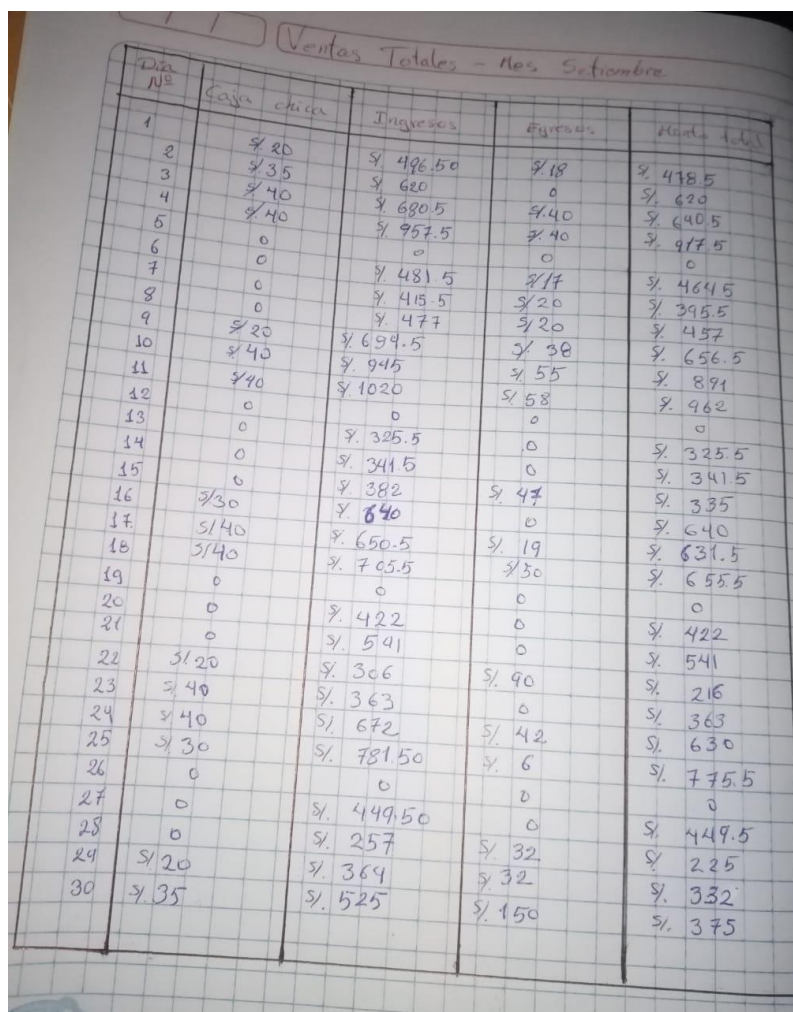 Ventas Totales - Mes Setiembre
Día Nº Caja chica Ingresos Egresos Monto total
1 S/ 20 S/. 496.50 S/. 18 S/. 478.5
2 S/. 35 S/. 620 0 S/. 620
3 S/. 40 S/. 680.5 S/. 40 S/. 640.5
4 S/. 40 S/. 957.5 S/. 40 S/. 917.5
5 0 0 0 0
6 0 S/. 481.5 S/17 S/. 464.5
7 0 S/. 415.5 S/20 S/. 395.5
8 0 S/. 477 S/20 S/. 457
9 S/20 S/. 694.5 S/. 38 S/. 656.5
10 S/40 S/. 945 S/. 55 S/. 891
11 S/40 S/. 1020 S/. 58 S/. 962
12 0 0 0 0
13 0 S/. 325.5 0 S/. 325.5
14 0 S/. 341.5 0 S/. 341.5
15 0 S/. 382 S/. 47 S/. 335
16 S/30 S/. 640 0 S/. 640
17 S/40 S/. 650.5 S/. 19 S/. 631.5
18 S/40 S/. 705.5 S/50 S/. 655.5
19 0 0 0 0
20 0 S/. 422 0 S/. 422
21 0 S/. 541 0 S/. 541
22 S/20 S/. 306 S/. 90 S/. 216
23 S/. 40 S/. 363 0 S/. 363
24 S/. 40 S/. 672 S/. 42 S/. 630
25 S/. 30 S/. 781.50 S/. 6 S/. 775.5
26 0 0 0 0
27 0 S/. 449.50 0 S/. 449.5
28 0 S/. 257 S/. 32 S/. 225
29 S/. 20 S/. 364 S/. 32 S/. 332
30 S/. 35 S/. 525 S/. 150 S/. 375